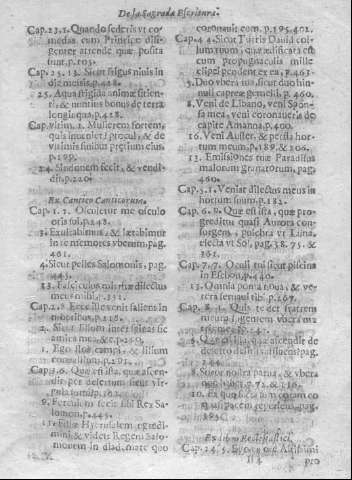 De la Sagrada Escritura.
Cap. 23. 1. Quando sederis vt co-
medas cum Principe dili-
genter attende quæ posita
sunt. p. 105.
Cap. 25. 13. Sicut frigus niuis in
die messis, p. 428.
25. Aqua frigida animæ sitien-
ti, & nuntius bonus de terra
longinqua. p. 428.
Cap. vltim. Mulierem fortem,
quis inueniet? procul, & de
vltimis finibus pretium eius.
p. 199.
24. Sindonem fecit, & vendi-
dit. p. 220.
Ex Cantico Canticorum.
Cap. 1. 1. Osculetur me osculo
oris sui. p. 248.
3. Exultabimus, & lætabimur
in te memores vberum. pag.
461.
4. Sicut pelles Salomonis, pag.
445.
13. Fasciculus mirrhæ dilectus
meus mihi. p. 351.
Cap. 2. 8. Ecce iste venit saliens in
montibus, p. 218.
2. Sicut lilium inter spinas sic
amica mea, & c. p. 259.
1. Ego flos campi, & lilium
conuallium. p. 261.
Cap. 3. 6. Quæ est ista, quæ ascen-
dit per desertum sicut vir-
gula fumi. p. 162.
9. Ferculum fecit sibi Rex Sa-
lomon. p. 445.
11. Filiæ Hyerusalem egredi-
mini, & videte Regem Salo-
monem in diademate quo
coronauit eum. p. 195. 402.
Cap. 4. 4. Sicut Turris Dauid col-
lum tuum, quæ ædificata est
cum propugnaculis mille
clypei pendent ex ea, p. 461.
5. Duo vbera tua, sicut duo hin-
nuli capreæ gemelli. p. 460.
8. Veni de Libano, veni Spon-
sa mea, veni coronaueris de
capite Amanna. p. 400.
16. Veni Auster, & perfla hor-
tum meum. p. 189. & 206.
13. Emissiones tuæ Paradisus
malorum granatorum, pag.
460.
Cap. 5. 1. Veniat dilectus meus in
hortum suum. p. 182.
Cap. 6. 9. Quæ est ista, quæ pro-
greditur quasi Aurora con-
surgens, pulchra vt Luna,
electa vt Sol, pag. 38. 75. &
361.
Cap. 7. 7. Oculi tui sicut piscinæ
in Esebon. p. 440.
13. Omnia poma noua, & ve-
tera seruaui tibi. p. 267.
Cap. 8. 1. Quis te det fratrem
5. Quæ est ista, quæ ascendit de
deserto
8. Soror nostra parua, & vbera
non habet. p. 72. & 116.
10. Ex quo facta sum coram eo
quasi pacem reperiens, pag.
383.
Ex libro Ecclesiastici.
Cap. 24. 5. Ego ex ore Altissimi
pro